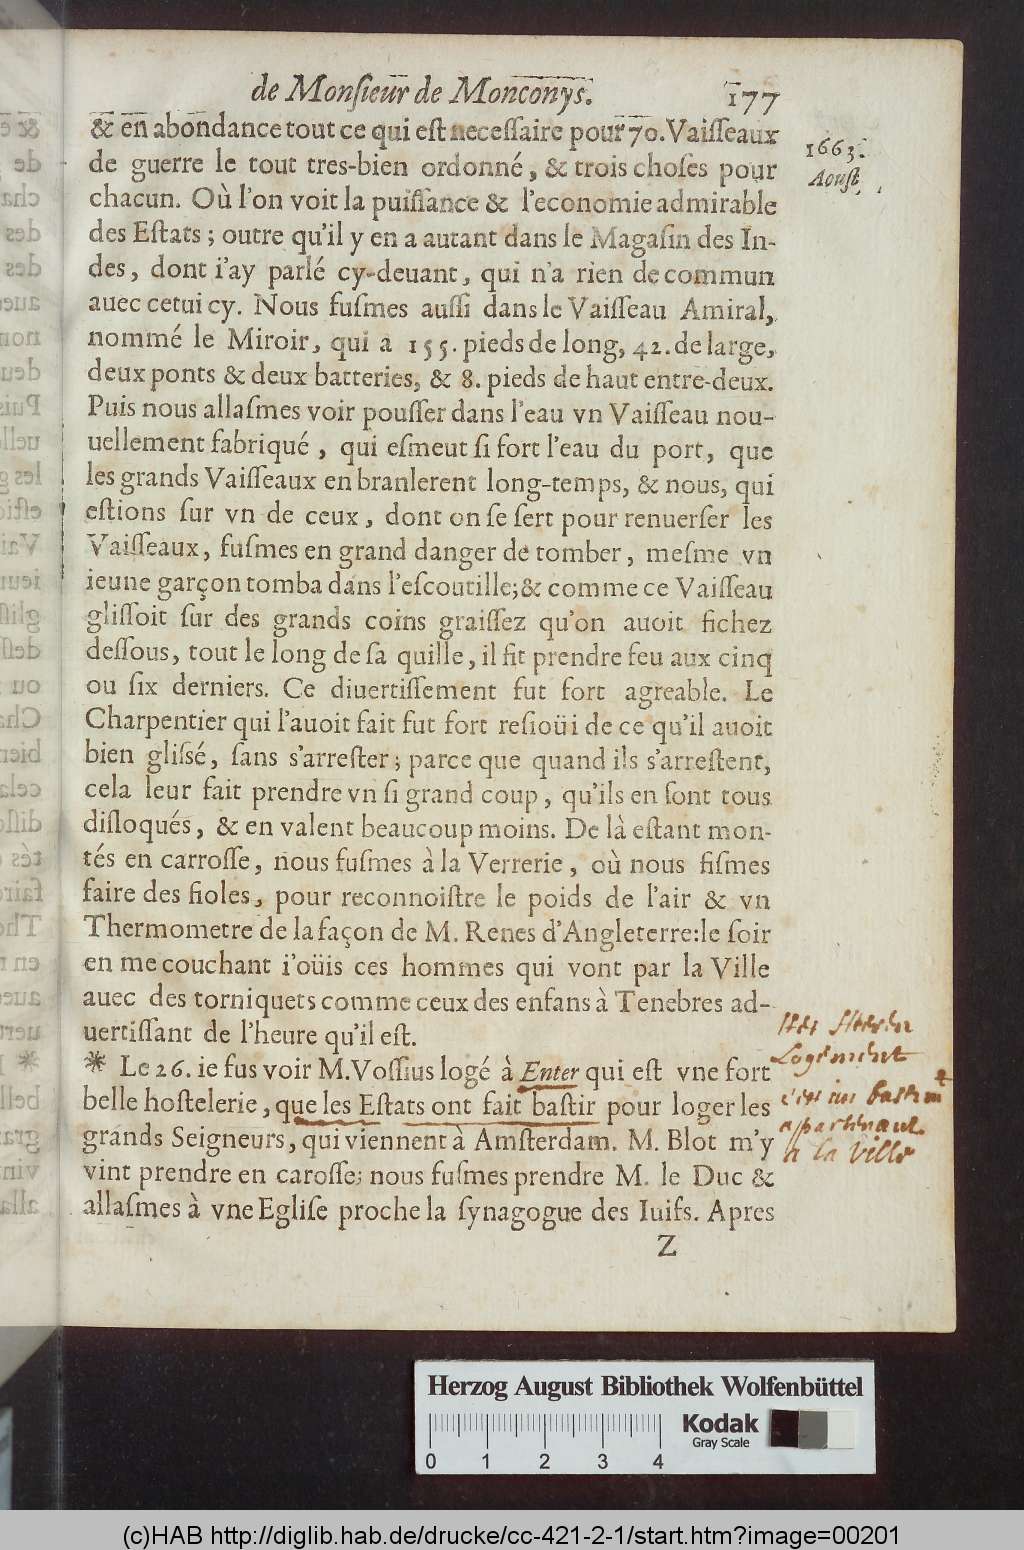 de Monſieur de Monconys. 177
& en abondance tout ce qui eſt neceſſaire pour 70. Vaiſſeaux
1663.
de guerre le tout tres-bien ordonné, & trois choſes pour
Aouſt,
chacun. Où l'on voit la puiſſance & l'economie admirable
des Eſtats ; outre qu'il y en a autant dans le Magaſin des In-
des, dont i'ay parlé cy-deuant, qui n'a rien de commun
auec cetui cy. Nous fuſmes auſſi dans le Vaiſſeau Amiral,
nommé le Miroir, qui a 155. pieds de long, 42. de large,
deux ponts & deux batteries, & 8. pieds de haut entre-deux.
Puis nous allaſmes voir pouſſer dans l'eau vn Vaiſſeau nou-
uellement fabriqué, qui eſmeut ſi fort l'eau du port, que
les grands Vaiſſeaux en branlerent long-temps, & nous, qui
eſtions ſur vn de ceux, dont on ſe ſert pour renuerſer les
Vaiſſeaux, fuſmes en grand danger de tomber, meſme vn
ieune garçon tomba dans l'eſcoutille; & comme ce Vaiſſeau
gliſſoit ſur des grands coins graiſſez qu'on auoit fichez
deſſous, tout le long de ſa quille, il fit prendre feu aux cinq
ou ſix derniers. Ce diuertiſſement fut fort agreable. Le
Charpentier qui l'auoit fait fut fort reſioüi de ce qu'il auoit
bien gliſsé, ſans s'arreſter ; parce que quand ils s'arreſtent,
cela leur fait prendre vn ſi grand coup, qu'ils en ſont tous
diſloqués, & en valent beaucoup moins. De là eſtant mon-
tés en carroſſe, nous fuſmes à la Verrerie, où nous fiſmes
faire des fioles, pour reconnoiſtre le poids de l'air & vn
Thermometre de la façon de M. Renes d'Angleterre: le ſoir
en me couchant i'oüis ces hommes qui vont par la Ville
auec des torniquets comme ceux des enfans à Tenebres ad-
uertiſſant de l'heure qu'il eſt.
* Le 26. ie fus voir M. Voſſius logé à Enter qui eſt vne fort
belle hoſtelerie, que les Eſtats ont fait baſtir pour loger les
grands Seigneurs, qui viennent à Amſterdam. M. Blot m'y
vint prendre en caroſſe; nous fuſmes prendre M. le Duc &
allaſmes à vne Egliſe proche la ſynagogue des Iuifs. Apres
Z
Logement
appartenant
a la Ville
Herzog August Bibliothek Wolfenbüttel
Kodak
Gray Scale
0 1 2 3 4
(c)HAB http://diglib.hab.de/drucke/cc-421-2-1/start.htm?image=00201